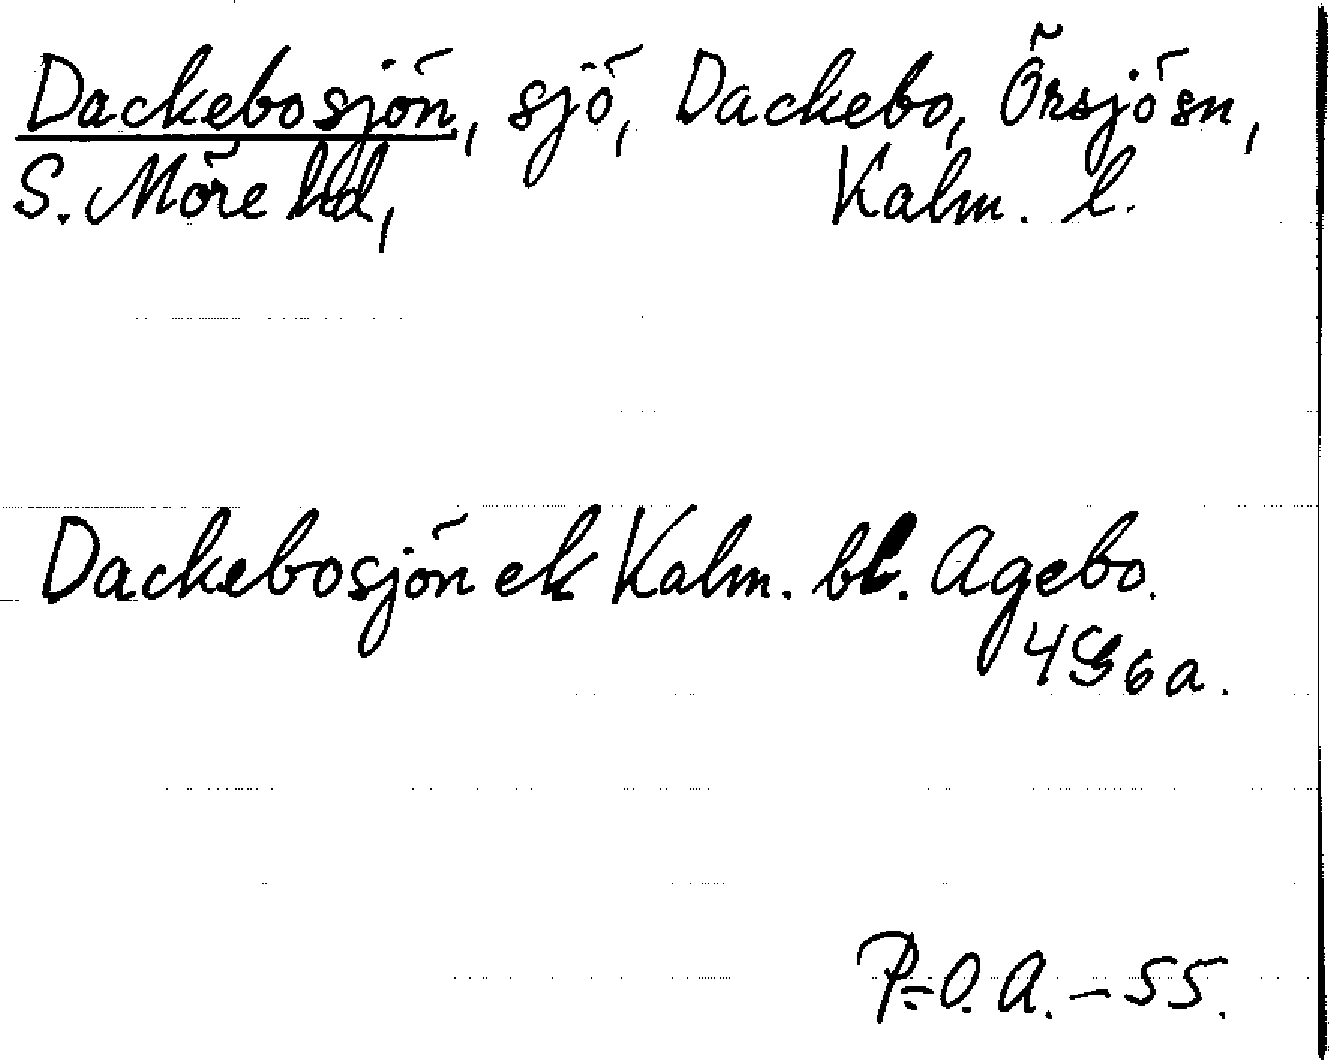 Dackebosjön, sjö, Dackebo, Örsjö sn,
S. Möre hd, Kalm. l.
Dackebosjön ek Kalm. bl. Agebo.
4G6a.
P-O. A. - 55.